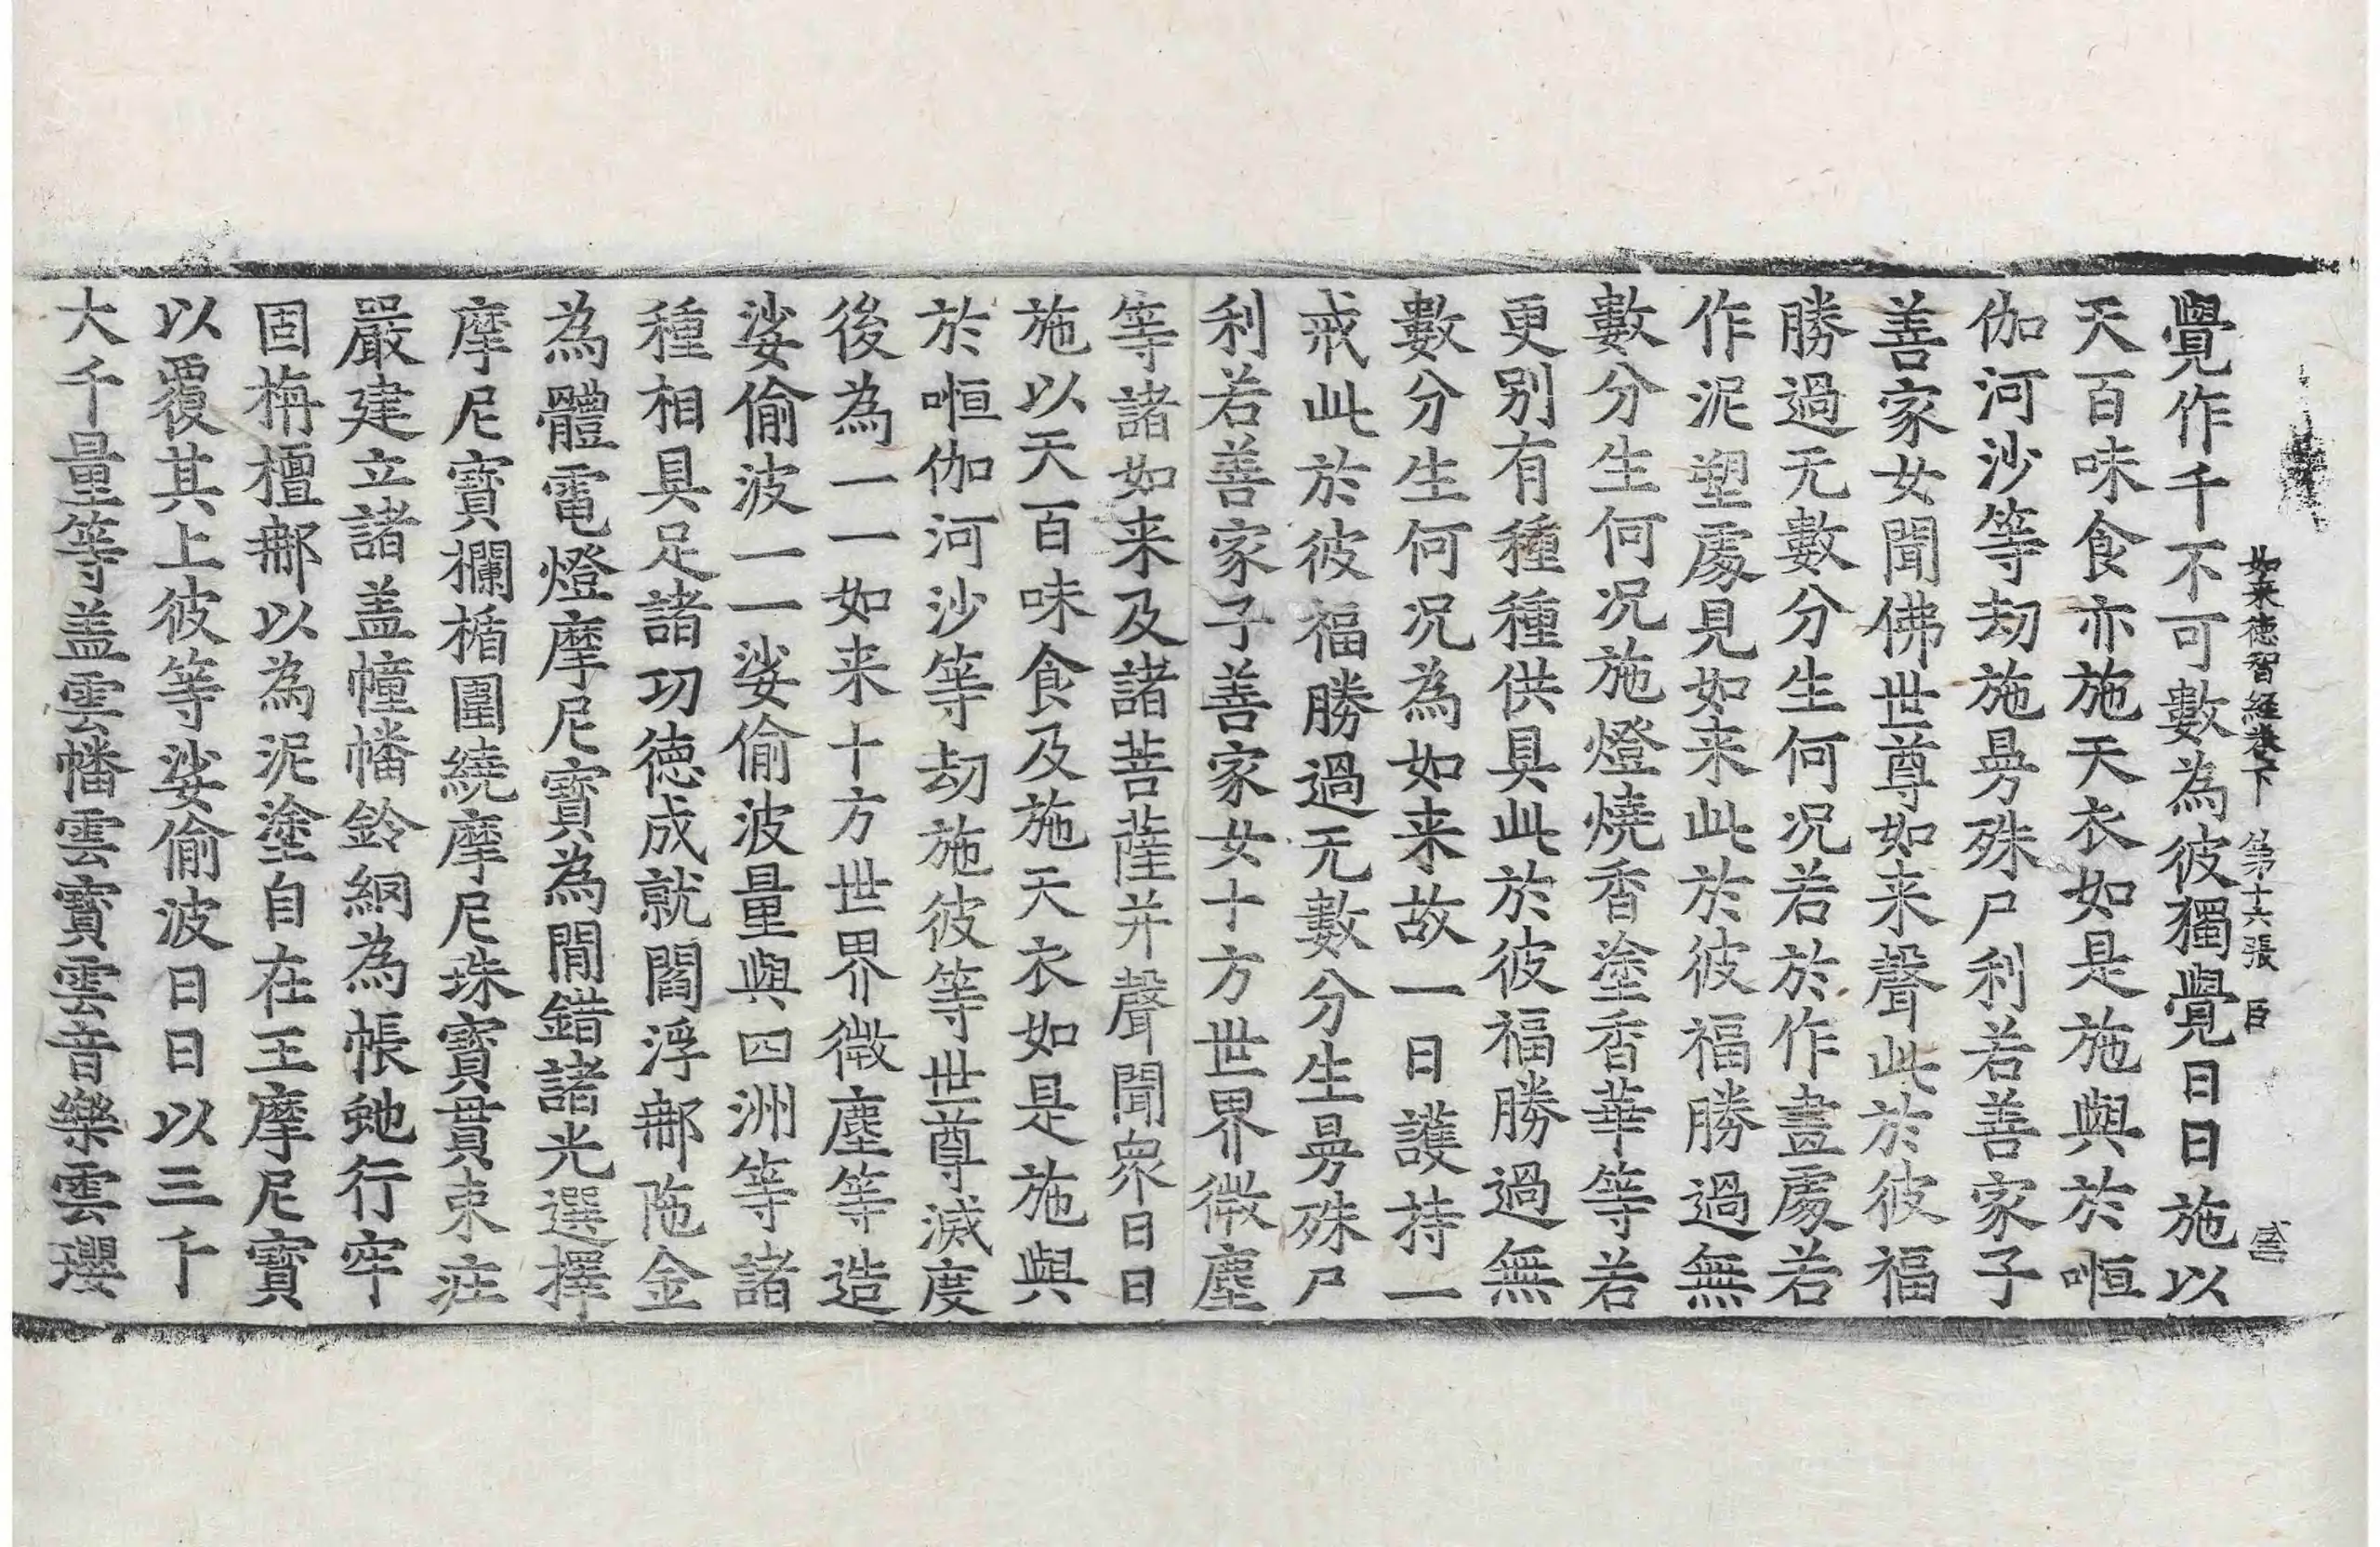 如来德智經卷下 第十六張 臣
覺作千不可數為彼獨覺日日施以
天百味食亦施天衣如是施與於㖶
伽河沙等劫施曼殊尸利若善家子
善家女聞佛世尊如来聲此於彼福
勝過无數分生何況若於作畫處若
作泥塑處見如来此於彼福勝過無
數分生何況施燈燒香塗香華等若
更別有種種供具此於彼福勝過無
數分生何況為如来故一日護持一
戒此於彼福勝過无數分生曼殊尸
利若善家子善家女十方世界微塵
等諸如来及諸菩薩并聲聞衆日日
施以天百味食及施天衣如是施與
於㖶伽河沙等劫施彼等世尊滅度
後為一一如来十方世界微塵等造
娑偷波一一娑偷波量與四洲等諸
種相具足諸功德成就閻浮那陁金
為體電燈摩尼寶為閒錯諸光選擇
摩尼寶欄楯圍繞摩尼珠寶貫束莊
嚴建立諸盖幢幡鈴網為帳虵行牢
固栴檀那以為泥塗自在王摩尼寶
以覆其上彼等娑偷波日日以三千
大千量等盖雲幡雲寶雲音樂雲瓔